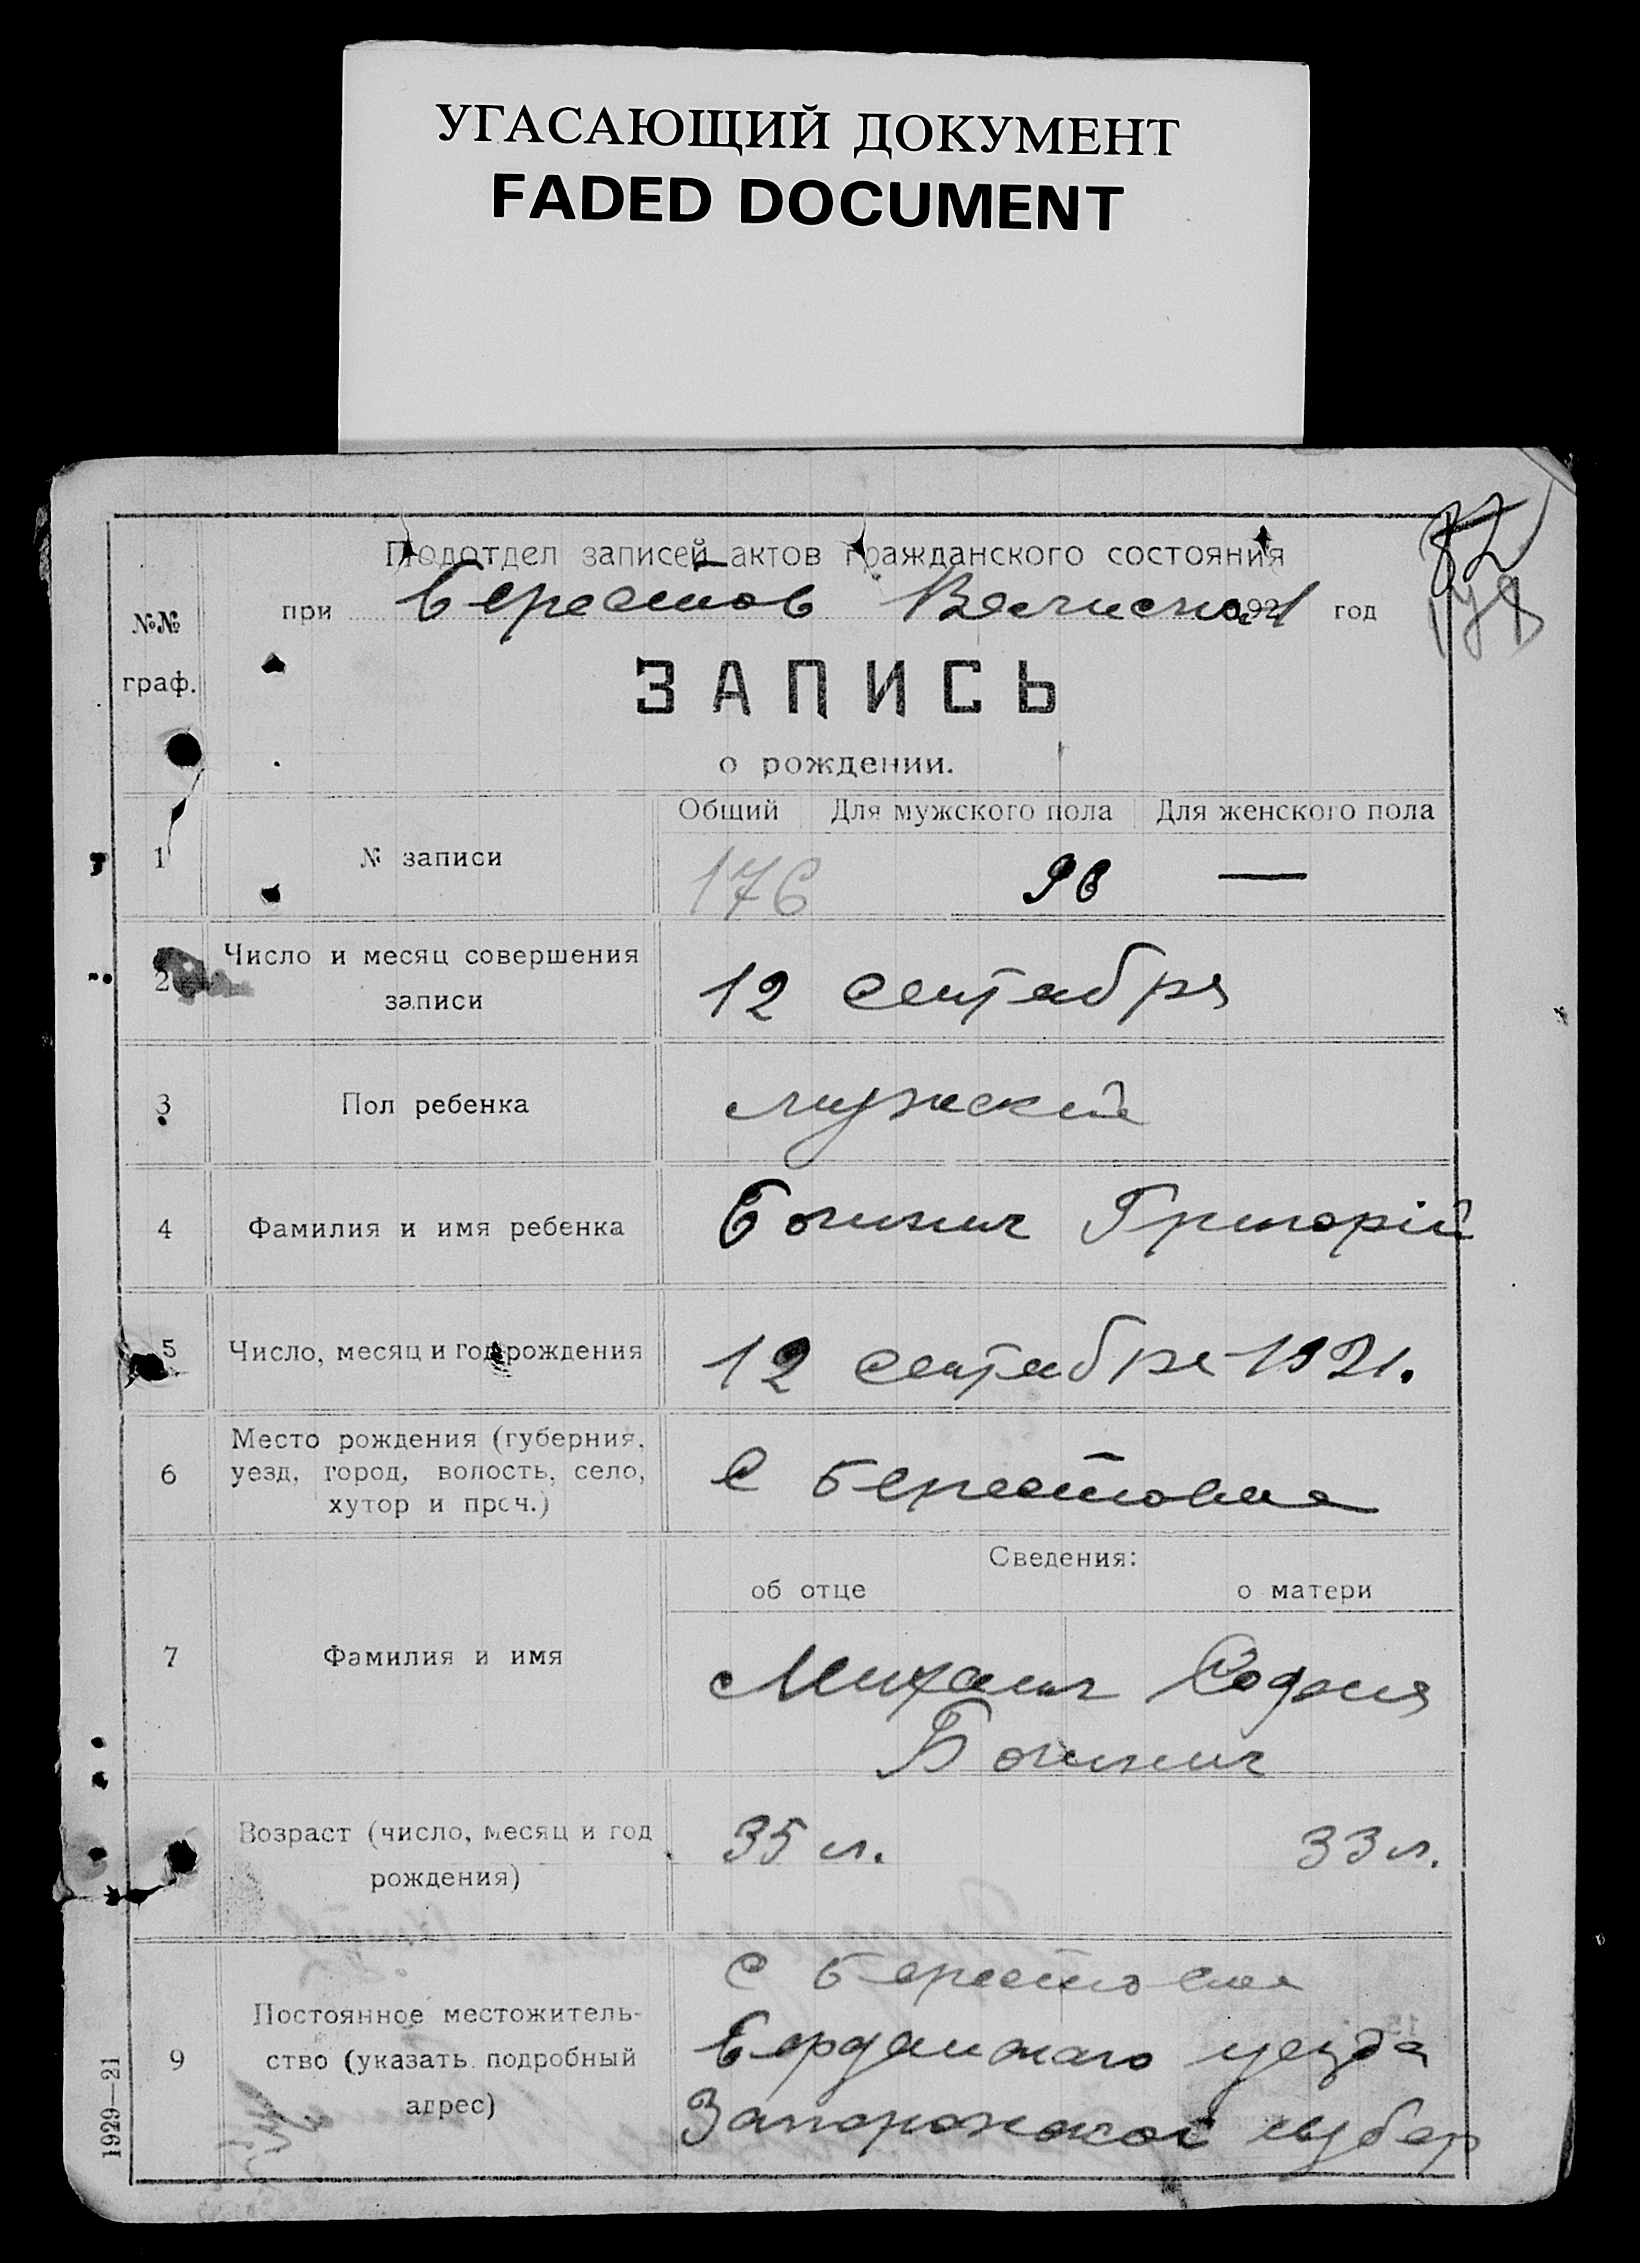 УГАСАЮЩИЙ ДОКУМЕНТ
FADED DOCUMENT
Подотдел записей актов гражданского состояния
при Берестов 1921 год
№№
граф.
ЗАПИСЬ
о рождении.
Общий Для мужского пола Для женского пола
1 № записи 176 96 —
2 Число и месяц совершения
записи
12 сентября
3 Пол ребенка мужской
4 Фамилия и имя ребенка Григорій
5 Число, месяц и год рождения 12 сентября 1921.
6 Место рождения (губерния,
уезд, город, волость, село,
хутор и проч.)
С Берестовая
Сведения:
об отце о матери
7 Фамилия и имя
Михаил София
Возраст (число, месяц и год
рождения)
35 л. 33 л.
9 Постоянное местожитель-
ство (указать подробный
адрес)
С Берестовая
Бердянского уезда
Запорожской губер
1929—21